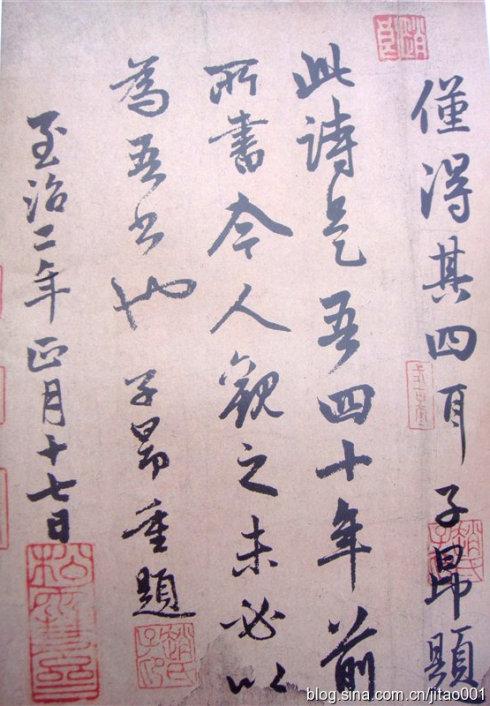 僅得其四耳子昂題
此诗是吾四十年前
所書今人觀之未必以
為吾書也子昂重題
至治二年正月十七日
趙氏子昂
松雪齋
blog.sina.com.cn/jitao001